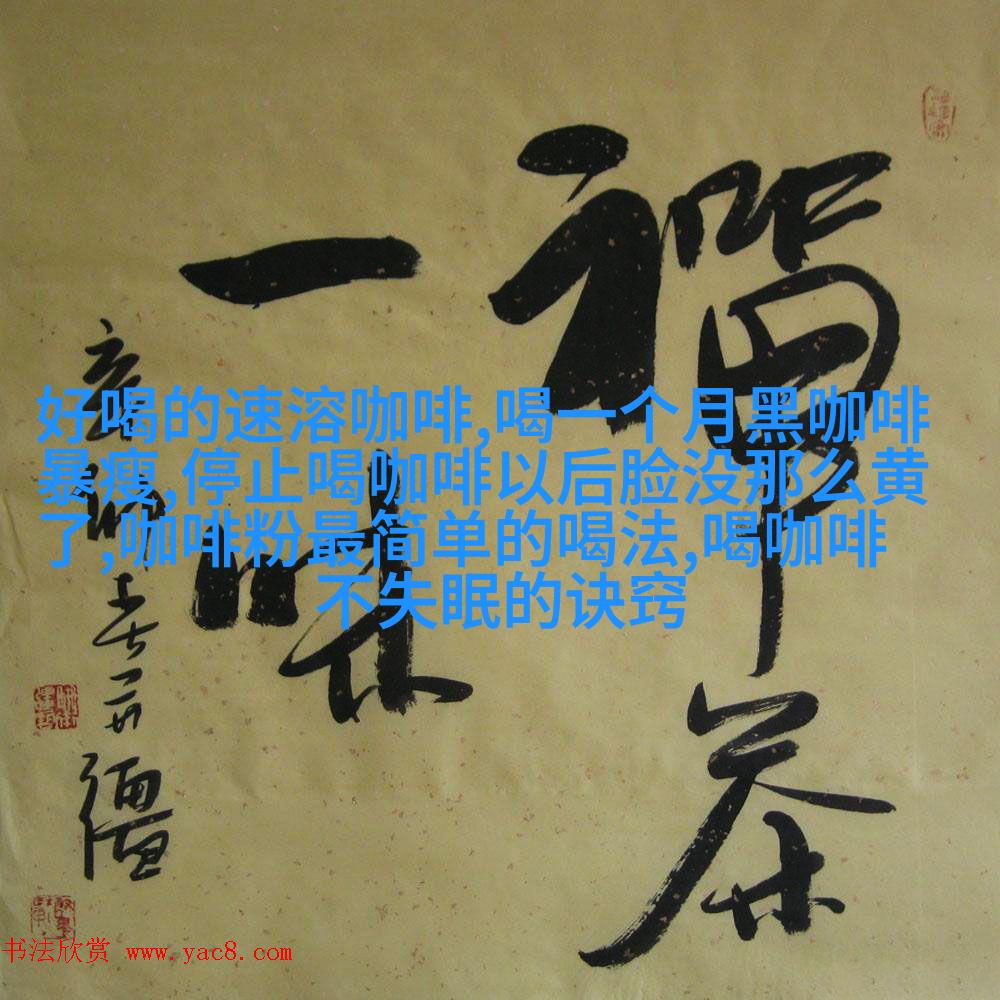 禪茶
一味
好喝的速溶咖啡,喝一个月黑咖啡
暴瘦,停止喝咖啡以后脸没那么黄
了,咖啡粉最简单的喝法,喝咖啡
不失眠的诀窍
书法欣赏 www.yac8.com